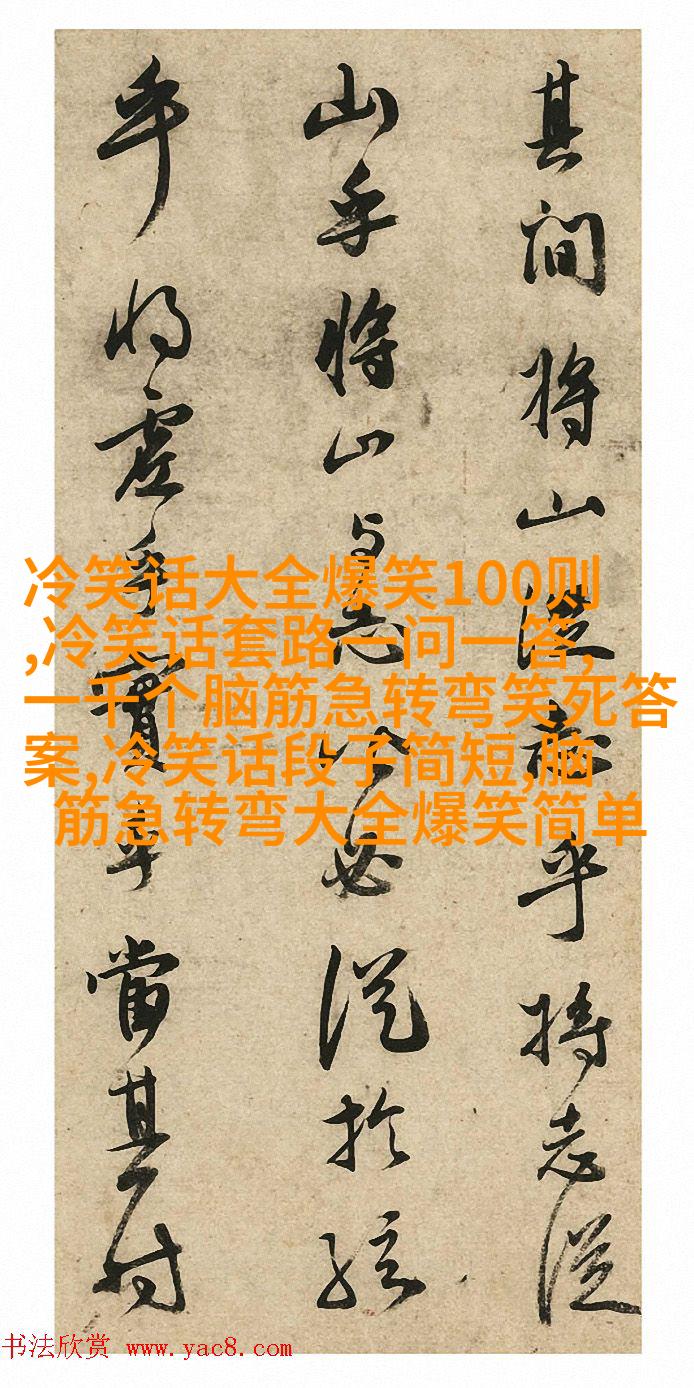 其間將山從志乎將志從
山乎將山与志必從於絃
乎將虛乎實乎當其
冷笑话大全爆笑100则
,冷笑话套路一问一答,
一千个脑筋急转弯笑死答
案,冷笑话段子简短,脑
筋急转弯大全爆笑简单
书法欣赏 www.yac8.com